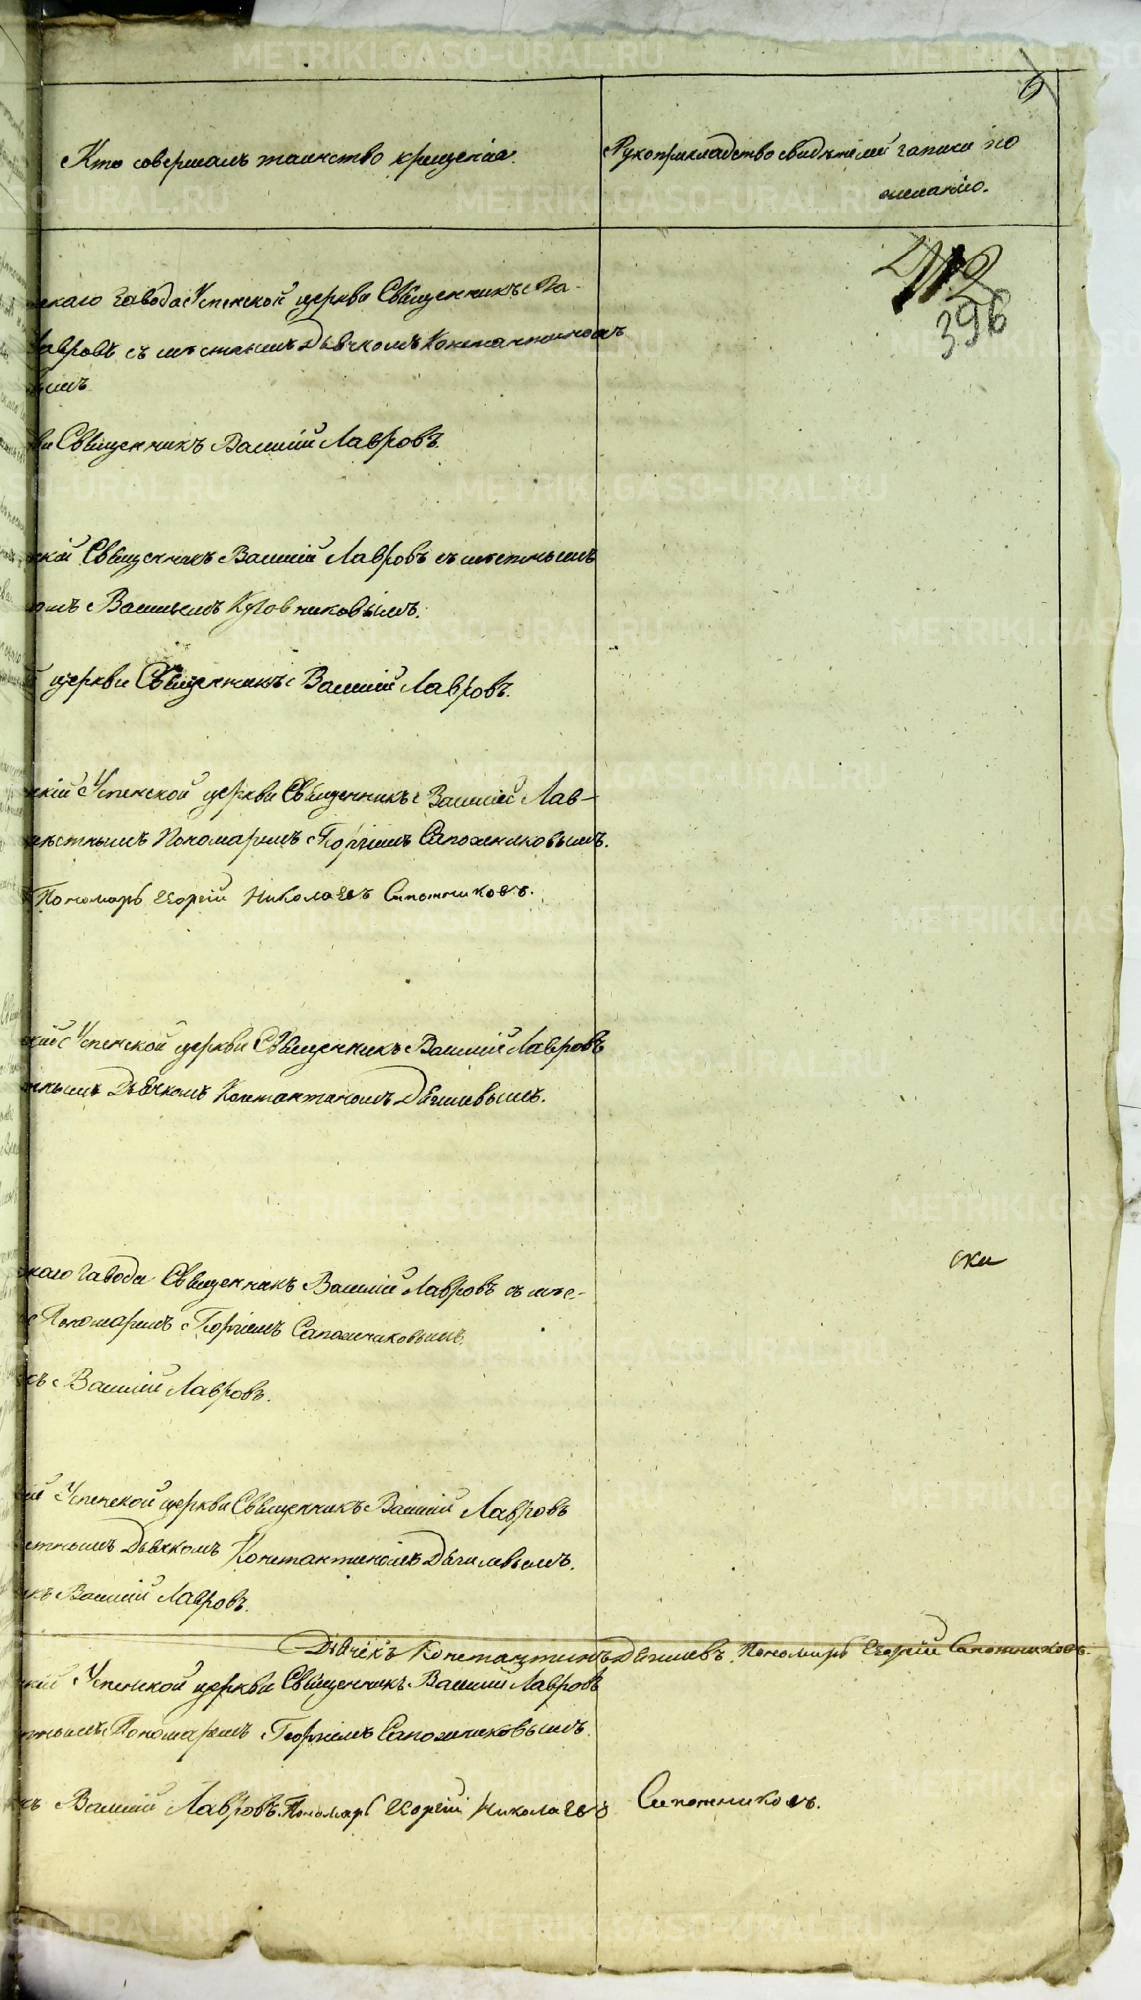 6
Кто совершалъ таинство крещенія.
Рукоприкладство свидѣтелей записи по
желанію.
396
скаго завода Успенской церкви Священникъ Ва-
Лавровъ съ мѣстнымъ Дьячкомъ Константиномъ
вымъ
ви Священникъ Василій Лавровъ.
ской Священникъ Василій Лавровъ съ мѣстнымъ
омъ Васильемъ
церкви Священникъ Василій Лавровъ.
скій Успенской церкви Священникъ Василій Лав-
мѣстнымъ Пономаремъ Георгіемъ Сапожниковымъ.
Пономарь Егоргій Николаевъ Сапожниковъ.
скій Успенской церкви Священникъ Василій Лавровъ
тнымъ Дьячкомъ Константиномъ Дягилевымъ.
ска
скаго завода Священникъ Василій Лавровъ съ мѣс-
Пономаремъ Георгіемъ Сапожниковымъ.
къ Василій Лавровъ.
кій Успенской церкви Священникъ Василій Лавровъ
стнымъ Дьячкомъ Константиномъ Дягилевымъ.
къ Василій Лавровъ.
Дьячекъ Константинъ Дягилевъ Пономарь Егоргій Сапожниковъ.
скій Успенской церкви Священникъ Василій Лавровъ
тнымъ Пономаремъ Георгіемъ Сапожниковымъ.
къ Василій Лавровъ. Пономарь Егоргій Николаевъ Сапожниковъ.